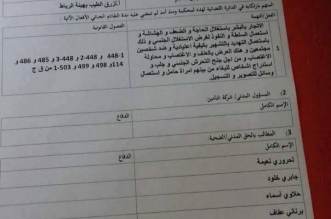 المتهم بارتكابه في الدائرة القضائية لهذه المحكمة ومنذ أمد لم تمض عليه مدة التقادم الجنائي الأفعال الآتية
أعزرق الطيب بهيئة الرباط
الفصول القانونية
الاتجار بالبشر باستغلال الحاجة و الضعف و الهشاشة و
استعمال السلطة و النفوذ لغرض الاستغلال الجنسي و ذلك
استعمال التهديد بالتشهير بكيفية اعتيادية و ضد شخصين
مجتمعين و هتك العرض بالعنف و الاغتصاب و محاولة
الاغتصاب و من أجل جنح التحرش الجنسي و جلب و
استدراج أشخاص للبغاء من بينهم امرأة حامل و استعمال
وسائل للتصوير و التسجيل
448-1 و 448-2 و 448-3 و 485 و 486 و
114 و 498 و 499 و 503-1 من ق ج
2: المسؤول المدني/ شركة التأمين
الإسم الكامل
الدفاع
3: المطالب بالحق المدني/الضحية
الإسم الكامل
الدفاع
تحروري نعيمة
جابري خلود
حلاوي أسماء
برناني عفاف